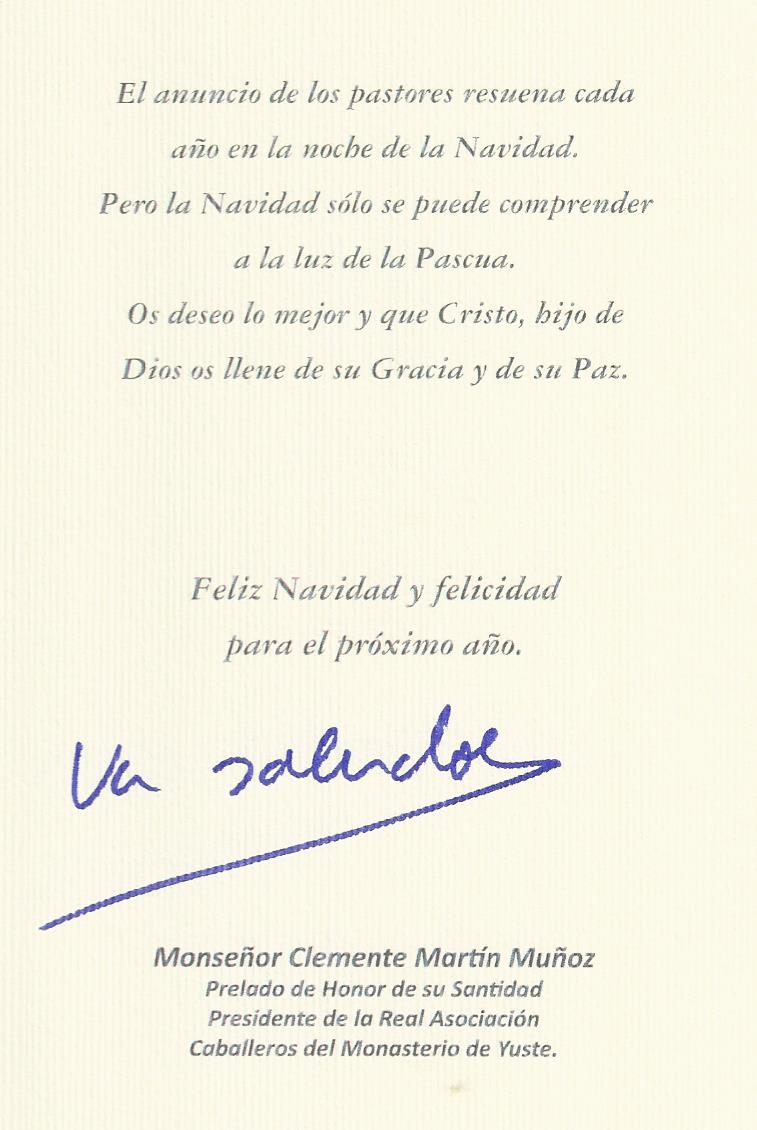 El anuncio de los pastores resuena cada
año en la noche de la Navidad.
Pero la Navidad sólo se puede comprender
a la luz de la Pascua.
Os deseo lo mejor y que Cristo, hijo de
Dios os llene de su Gracia y de su Paz.
Feliz Navidad y felicidad
para el próximo año.
Un saludo
Monseñor Clemente Martín Muñoz
Prelado de Honor de su Santidad
Presidente de la Real Asociación
Caballeros del Monasterio de Yuste.